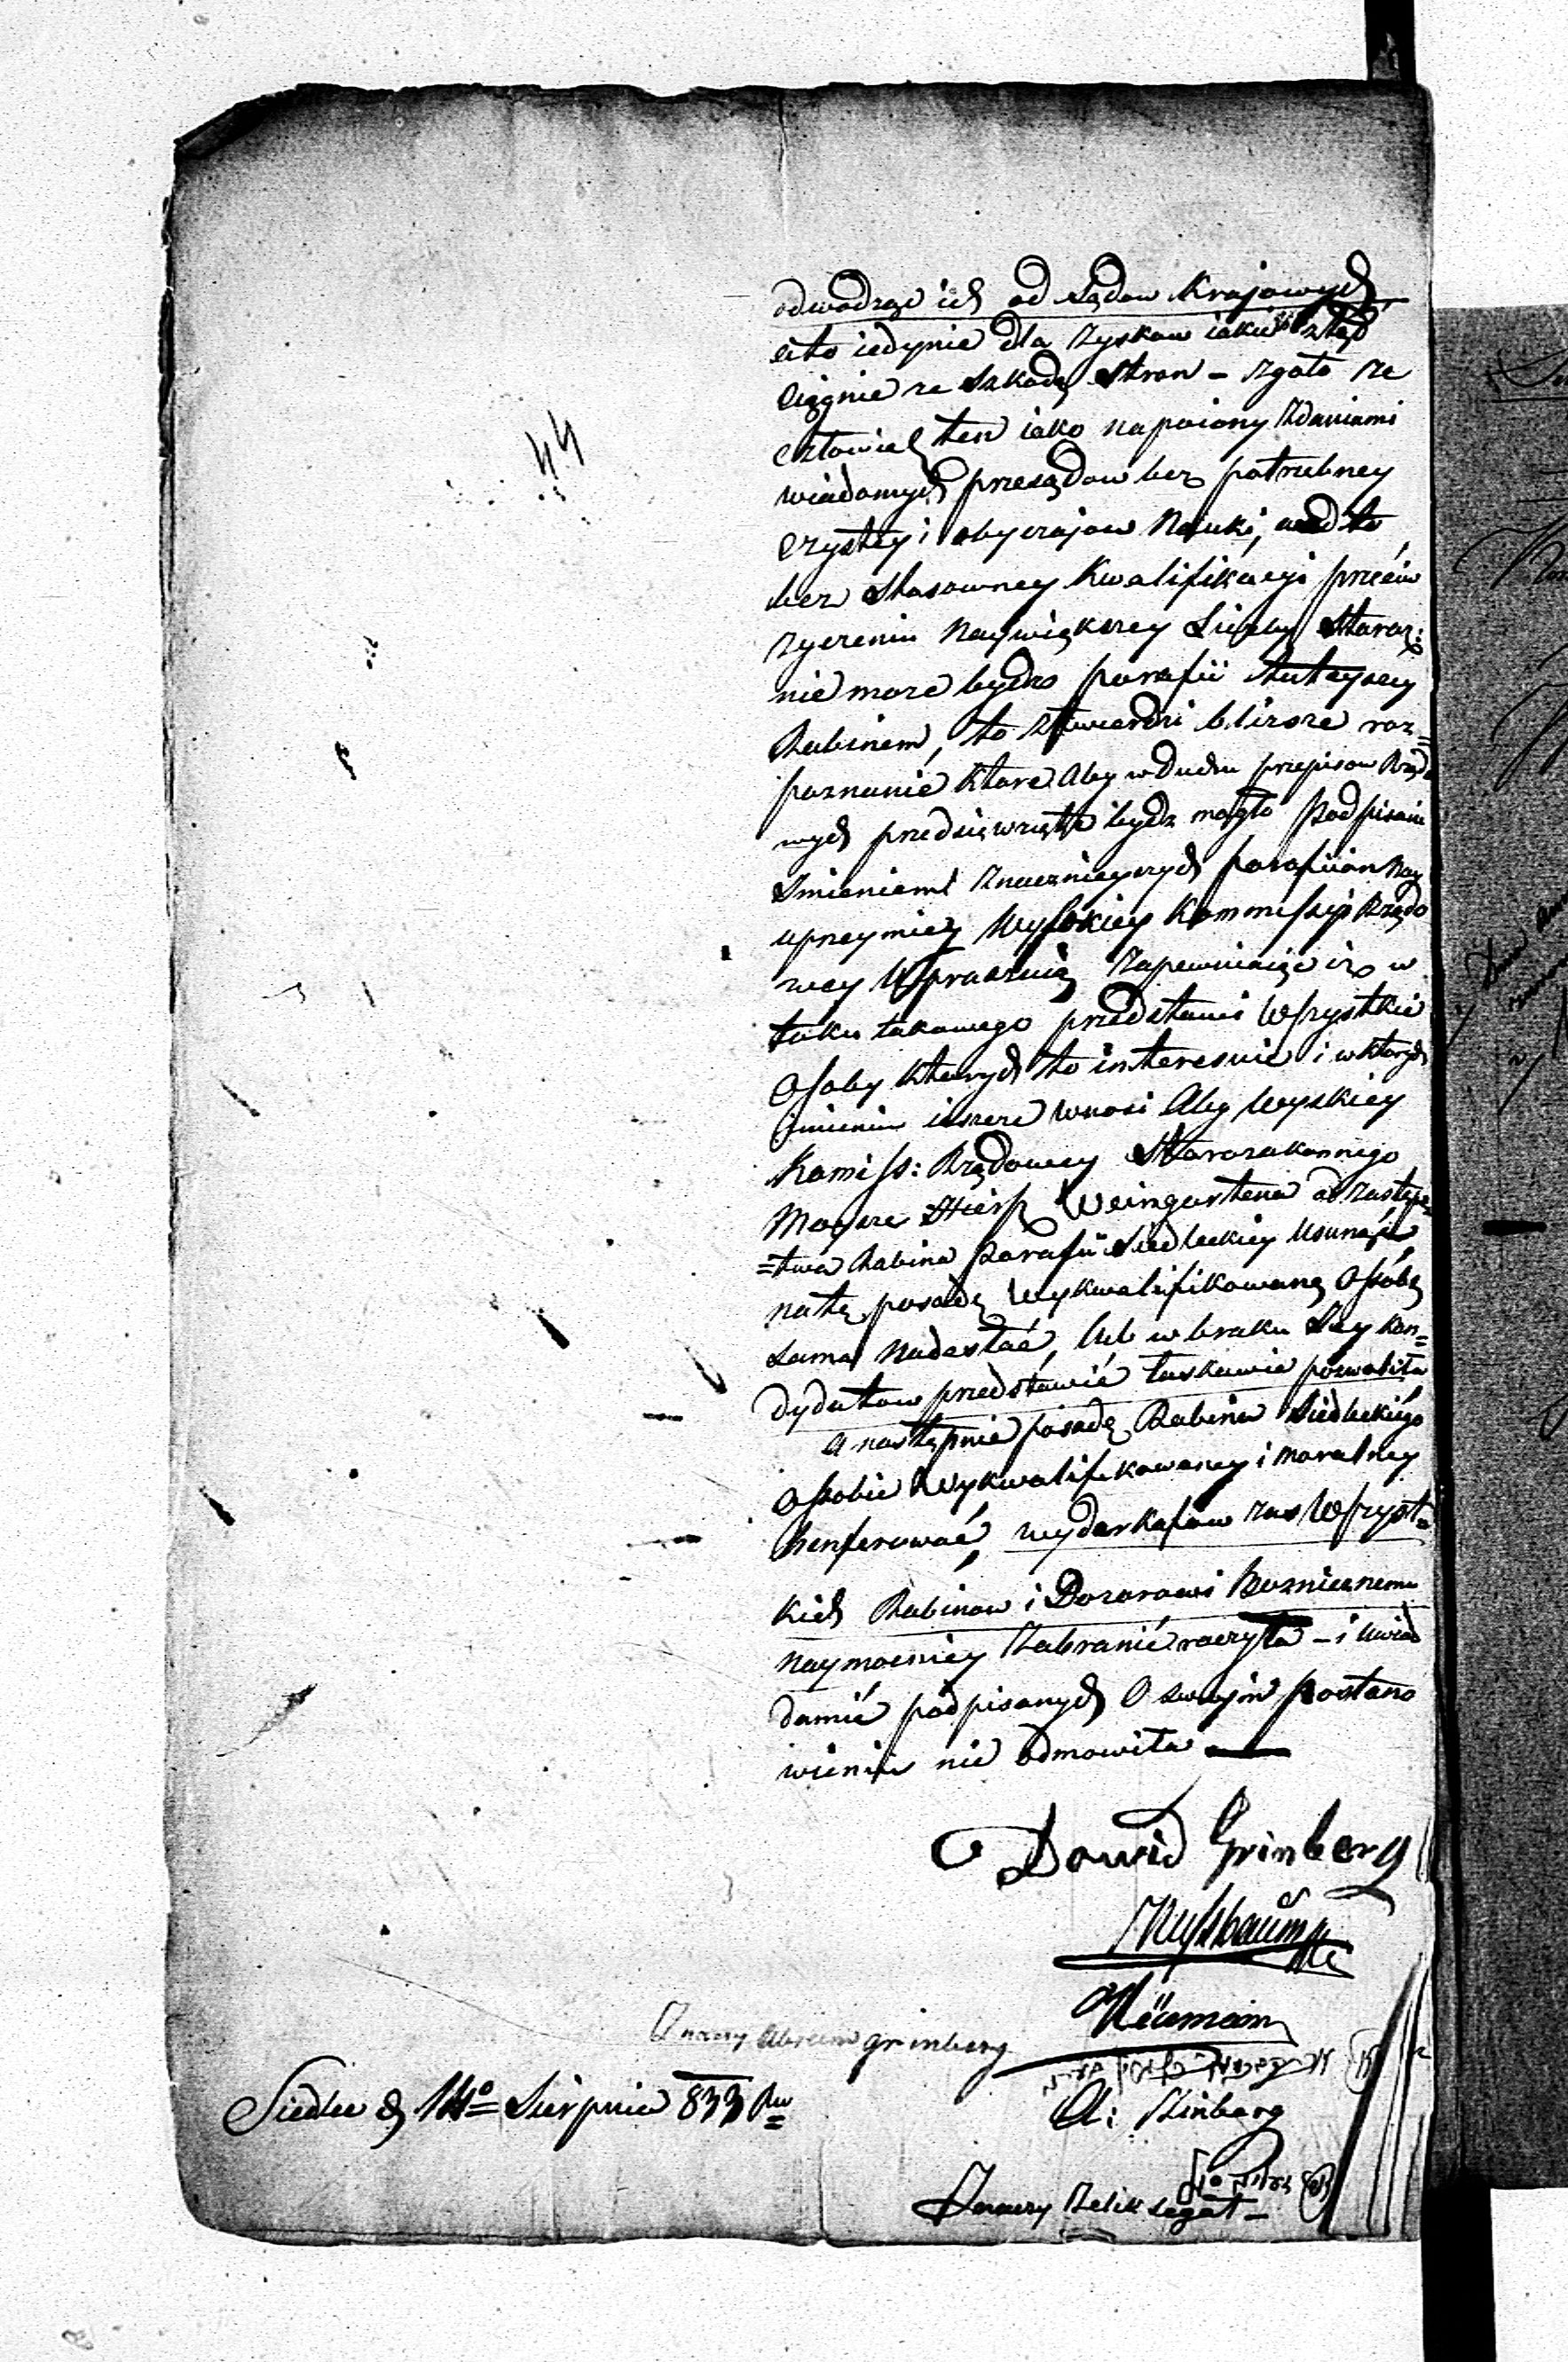 odwodząc ich od Sądow Krajowych
a to iedynie dla zyskow iakie ztąd
ciągnie ze szkodą Stron – zgoła ze
człowiek ten iako napoiony zdaniami
wiadomych przesądow bez potrzebney
czystey i obyczajow Nauki, nadto
bez stosowney Kwalifikacyi przeciw
życzeniu Naywiększey Liczby Staroz:
nie może bydź parafii tuteyszey
Rabinem, to ztwierdzi bliższe roz=
poznanie które Aby w duchu przepisow Rządo
wych przedsięwzięte bydź mogło Podpisani
Imieniem znacznieyszych parafiian Nay
uprzeymiey Wysokiey Kommissyi Rządo
wey Upraszaią zapewniaiąc iż w
toku takowego przedstawi Wszystkie
Osoby których to interesuie i w których
imieniu ieszcze wnosi Aby Wyskiey
Komiss: Rządowey Starozakonnego
Moysze Hersz Weingartena od zastęp=
=twa Rabina Parafii Siedleckiey Usunąć
na tę posadę Wykwalifikowaną Osobę
sama Nadesłać, lub w braku Jey kan=
dydatow przedstawić łaskawie pozwoliła
a następnie posadę Rabina Siedleckiego
Osobie Wykwalifikowaney i moralney
Konferować, wyderkafow zas Wszyst=
kich Rabinow i Dozorowi Boznicznemu
naymocniey Zabronić raczyła – i Uwia
domić podpisanych O swojem Postano
wieniu nie odmowiła —
Dawid Grinberg
Nussbaum
Neumain
Znaczy Abram grinberg
Siedlce d. 14º Sierpnia 833 Rw
A: Szinberg
Znaczy Zelik Legat –